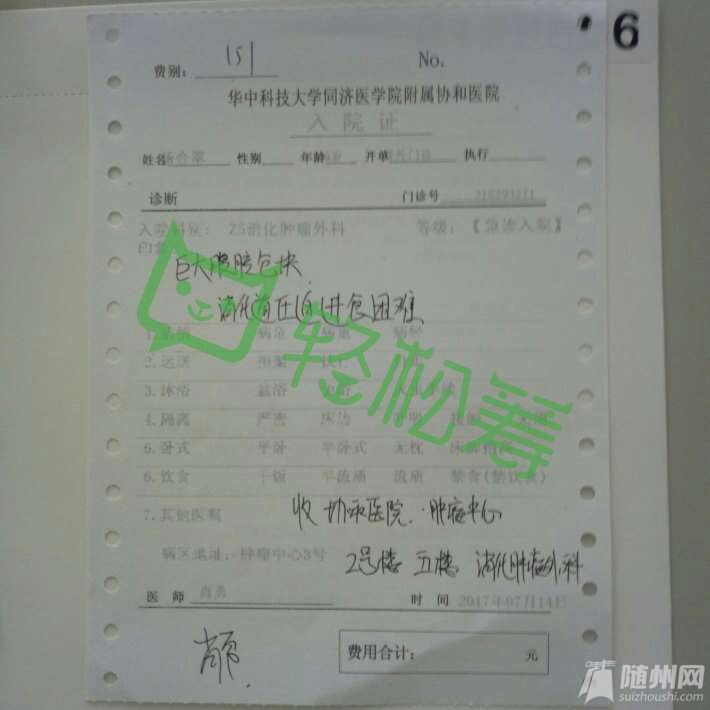 6
151
费别: No.
华中科技大学同济医学院附属协和医院
入院证
姓名 性别 年龄 开单 执行
诊断 门诊号
入院科别: Z5消化肿瘤外科 等级: 【急诊入院】
巨大腹腔包块
消化道压迫进食困难
轻松筹
2.运送
3.沐浴 盆浴
4.隔离 严密 床边
5.卧式 平卧 半卧式 无枕
6.饮食 干饭 半流质 流质 禁食(禁饮食)
7.其他医嘱
收 协和医院.肿瘤中心
病区地址: 肿瘤中心3号
2号楼 五楼 消化肿瘤外科
医师 时间 2017年07月14日
费用合计: 元
随州网
suizhoushi.com